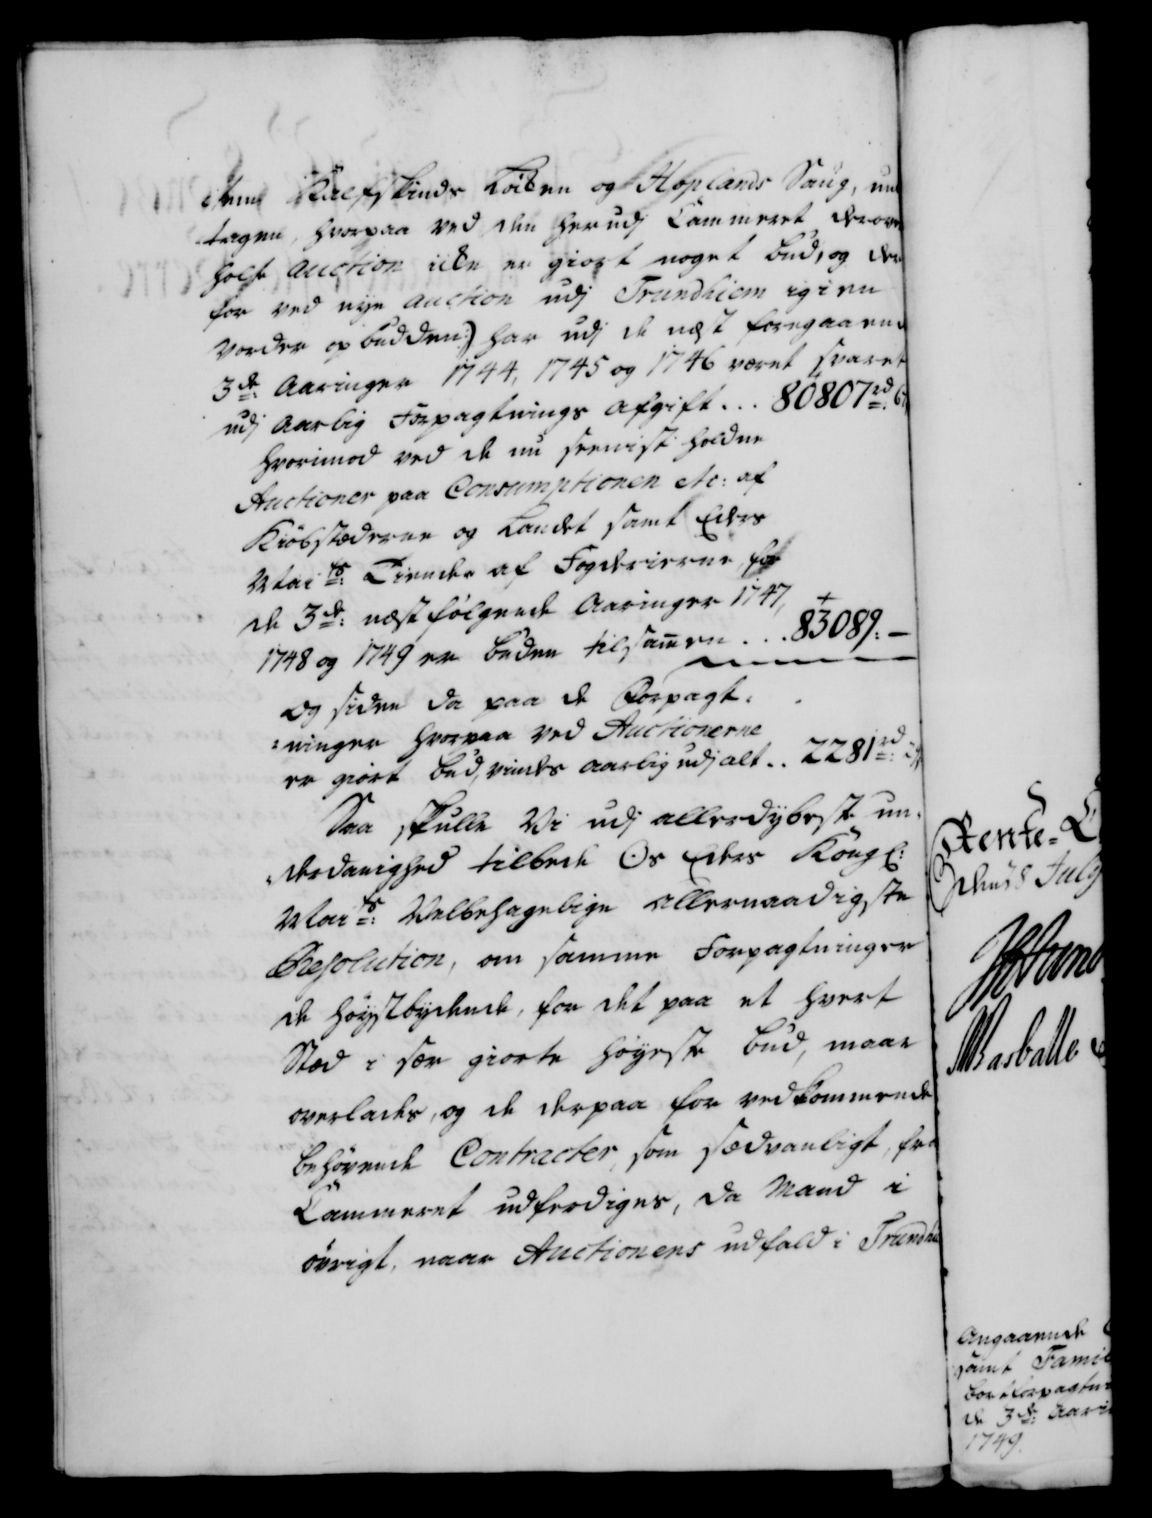 Kalfskinds Løkken og Hoplands Saug, und
tagen, hvorpaa ved den her udj Cammeret derover
holte Auction icke er giort noget bud, og der
for ved nÿe auction udj Trundhiem igien
vorder opbudden) har udj de næst foregaaende
3de: Aaringer 1744, 1745 og 1746 været svaret
udj Aarlig Forpagtnings Afgift ... 80807rd: 6
hvorimod ved de nu seenist holdne
Auctioner paa Consumptionen etc: af
Kiöbstæderne og Landet samt Eders
Maits: Tiender af Fogderierne for
de 3de: næstfølgende Aaringer 1747,
1748 og 1749 er buden tilsamen ... 83089: –
Og siden da paa de Forpagt-
ninger hvorpaa ved Auctionerne
er giort bud, vindes aarlig udj alt .. 2281rd:
Saa skulle Vi udj allerdybeste un-
derdanighed tilbede Os Eders Kongl:
Maits: Velbehagelige allernaadigste
Resolution, om samme Forpagtninger
de höystbydende, for det paa et hvert
Stæd i sær giorte höyeste bud, maae
overlades, og de derpaa for vedkommende
behövende Contracter, som sædvanligt, fra
Cammeret udferdiges, da Mand i
övrigt, naar Auctionens udfald i Trundhi
Rente-C
den 18 July
Angaaende
samt Famil
bortforpagtni
de 3de: Aarin
1749.